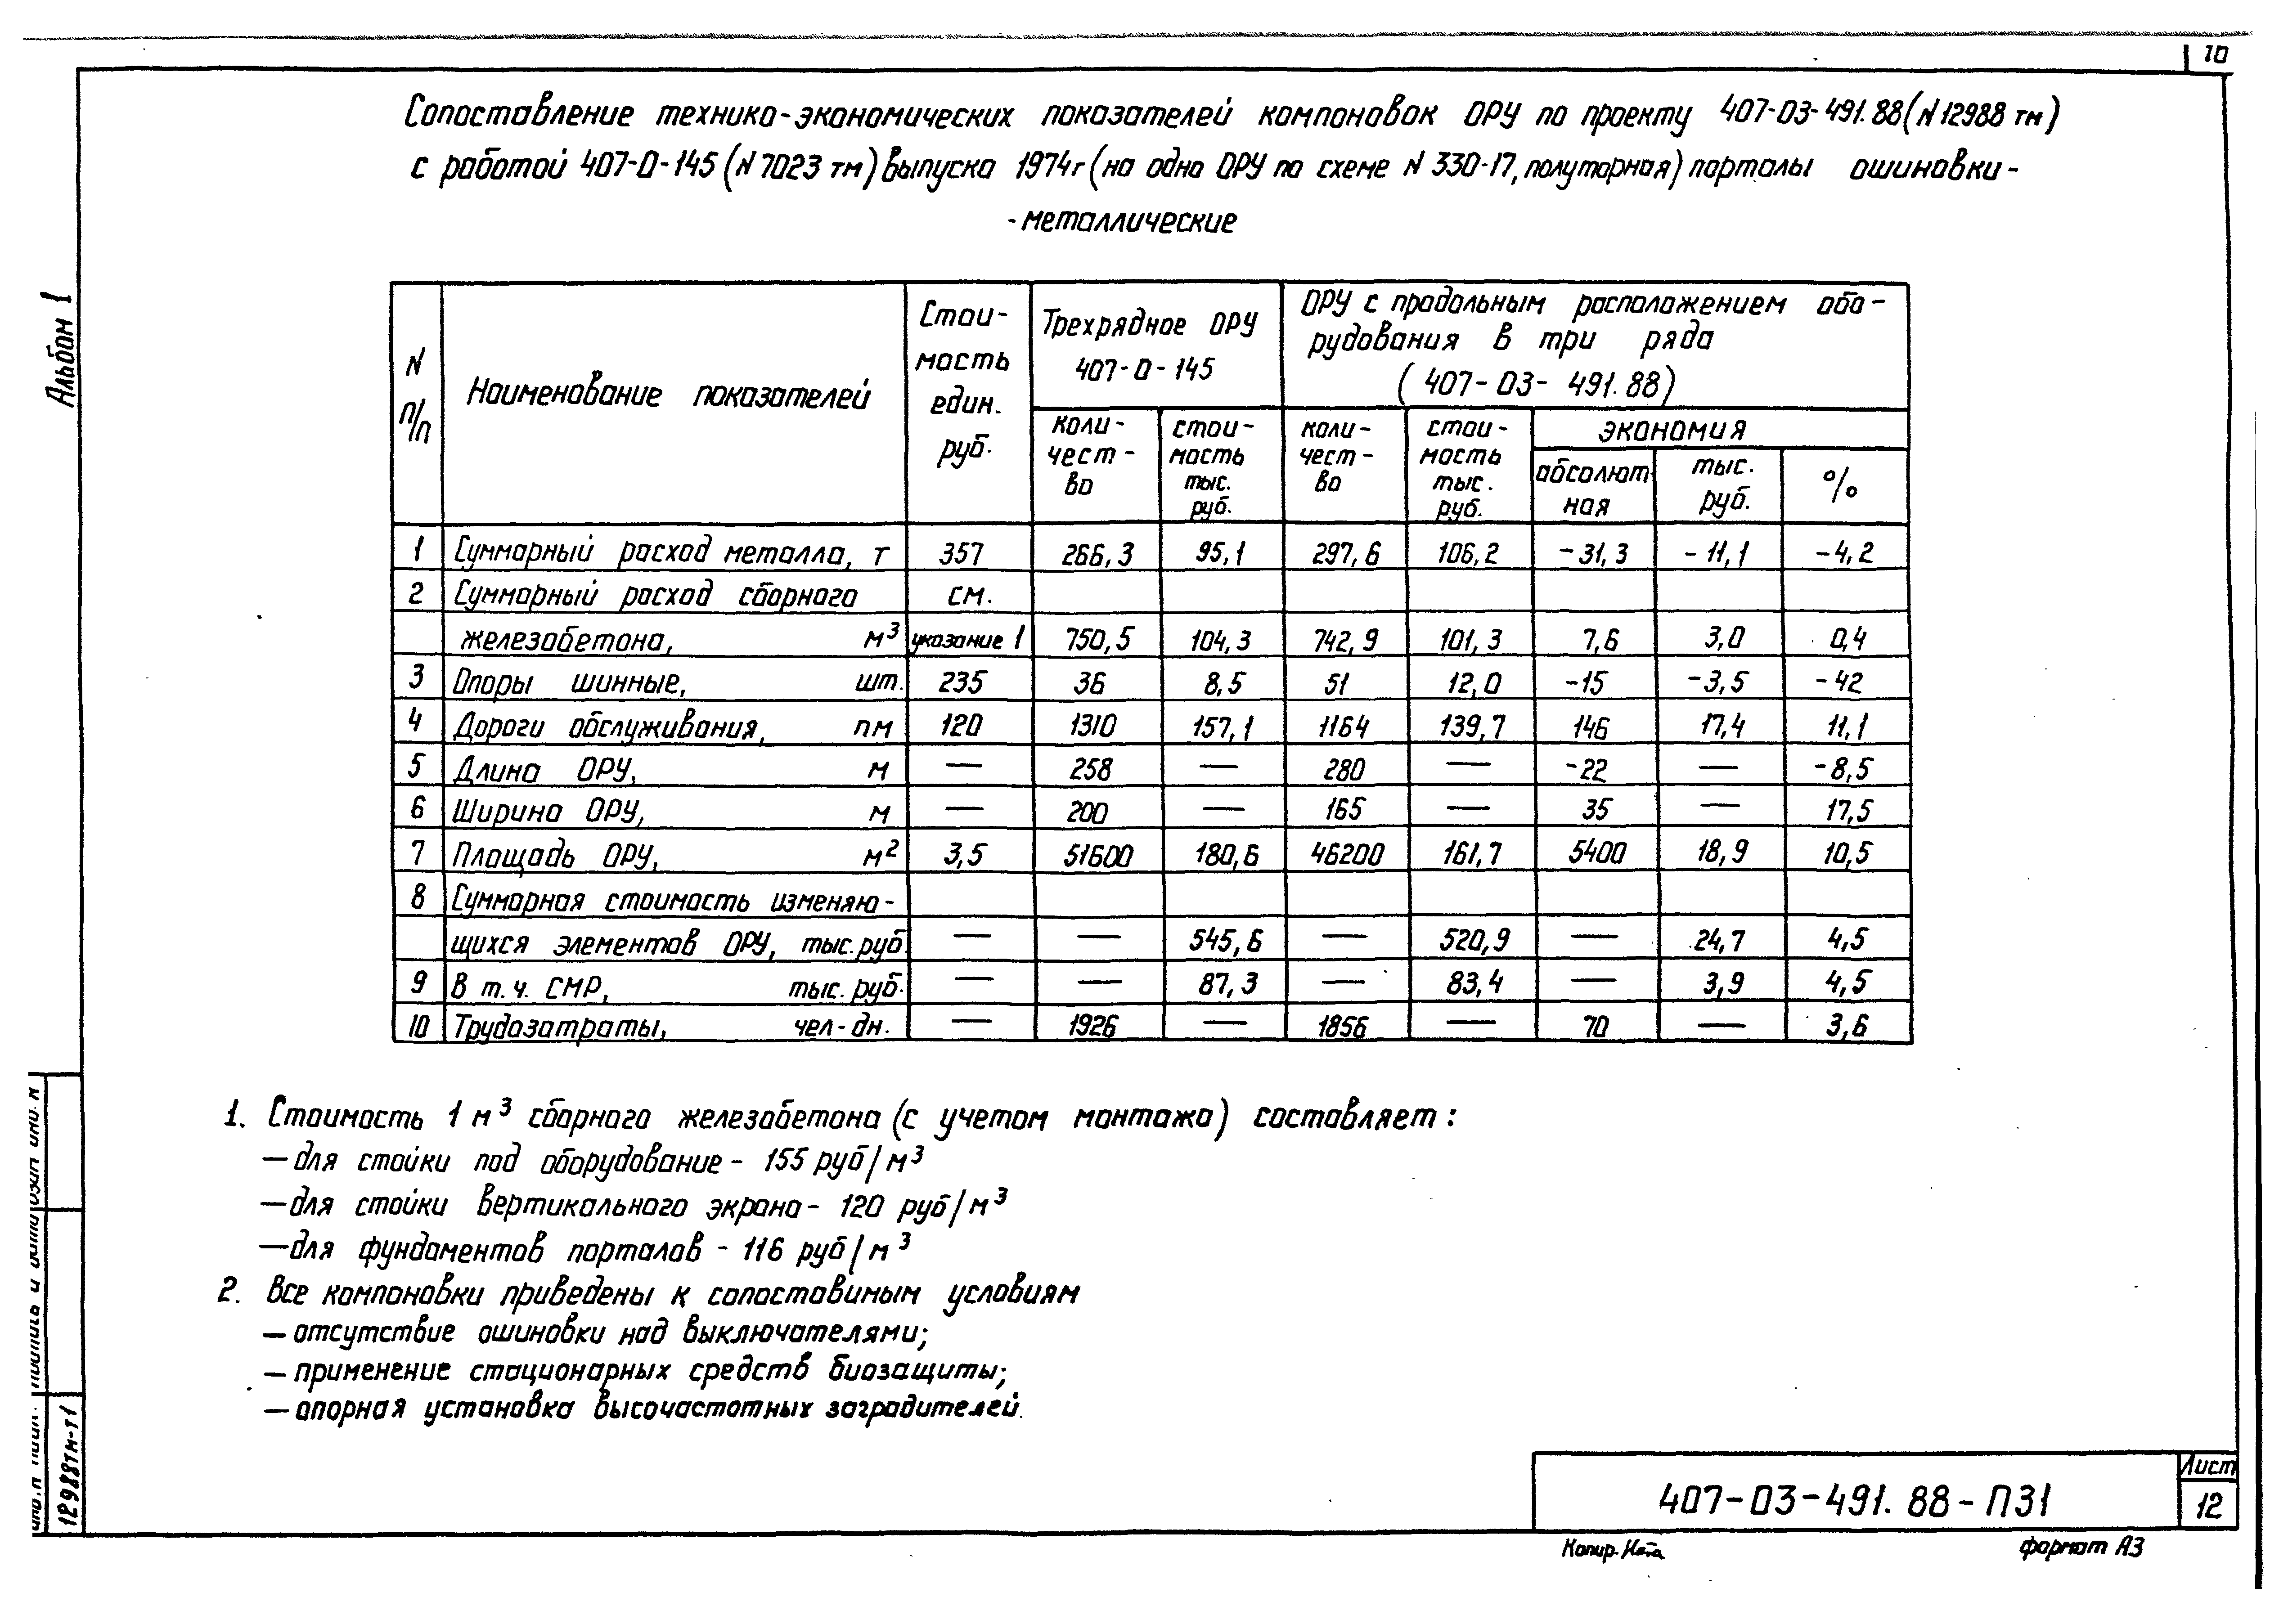 10
Сопоставление технико-экономических показателей компоновок ОРУ по проекту 407-03-491.88 (N 12988 тм)
с работой 407-0-145 (N 7023 тм) выпуска 1974г (на одно ОРУ по схеме N 330-17, полуторная) порталы ошиновки -
- металлические
Альбом 1
N п/п | Наименование показателей | Стои- мость един. руб. | Трехрядное ОРУ 407-0-145 | ОРУ с продольным расположением обо- рудования в три ряда (407-03-491.88)
коли- чест- во | стои- мость тыс. руб. | коли- чест- во | стои- мость тыс. руб. | экономия
абсолют ная | тыс. руб. | %
1 | Суммарный расход металла, т | 357 | 266,3 | 95,1 | 297,6 | 106,2 | -31,3 | -11,1 | -4,2
2 | Суммарный расход сборного | см.
железобетона, м³ | указание 1 | 750,5 | 104,3 | 742,9 | 101,3 | 7,6 | 3,0 | 0,4
3 | Опоры шинные, шт. | 235 | 36 | 8,5 | 51 | 12,0 | -15 | -3,5 | -42
4 | Дороги обслуживания, пм | 120 | 1310 | 157,1 | 1164 | 139,7 | 146 | 17,4 | 11,1
5 | Длина ОРУ, м | — | 258 | — | 280 | — | -22 | — | -8,5
6 | Ширина ОРУ, м | — | 200 | — | 165 | — | 35 | — | 17,5
7 | Площадь ОРУ, м² | 3,5 | 51600 | 180,6 | 46200 | 161,7 | 5400 | 18,9 | 10,5
8 | Суммарная стоимость изменяю-
щихся элементов ОРУ, тыс. руб | — | — | 545,6 | — | 520,9 | — | 24,7 | 4,5
9 | В т.ч. СМР, тыс. руб. | — | — | 87,3 | — | 83,4 | — | 3,9 | 4,5
10 | Трудозатраты, чел-дн. | — | 1926 | — | 1856 | — | 70 | — | 3,6
1. Стоимость 1 м³ сборного железобетона (с учетом монтажа) составляет:
— для стойки под оборудование - 155 руб/м³
— для стойки вертикального экрана - 120 руб/м³
— для фундаментов порталов - 116 руб/м³
2. Все компоновки приведены к сопоставимым условиям
— отсутствие ошиновки над выключателями;
— применение стационарных средств биозащиты;
— опорная установка высочастотных заградителей.
12988тм-т1
407-03-491.88-ПЗ1
Лист
12
Копир.
формат А3